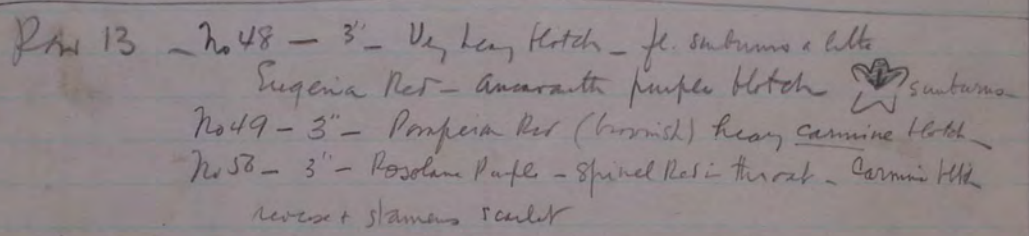 Row 13 - No 48 - 3" - Very heavy blotch - fl. sunburns a little
Eugenia Red - amaranth purple blotch sunburns
No 49 - 3" - Pompeian Red (brownish) heavy carmine blotch -
No 50 - 3" - Rosolane Purple - Spinel Red in throat - Carmine bltch
reverse + stamens scarlet